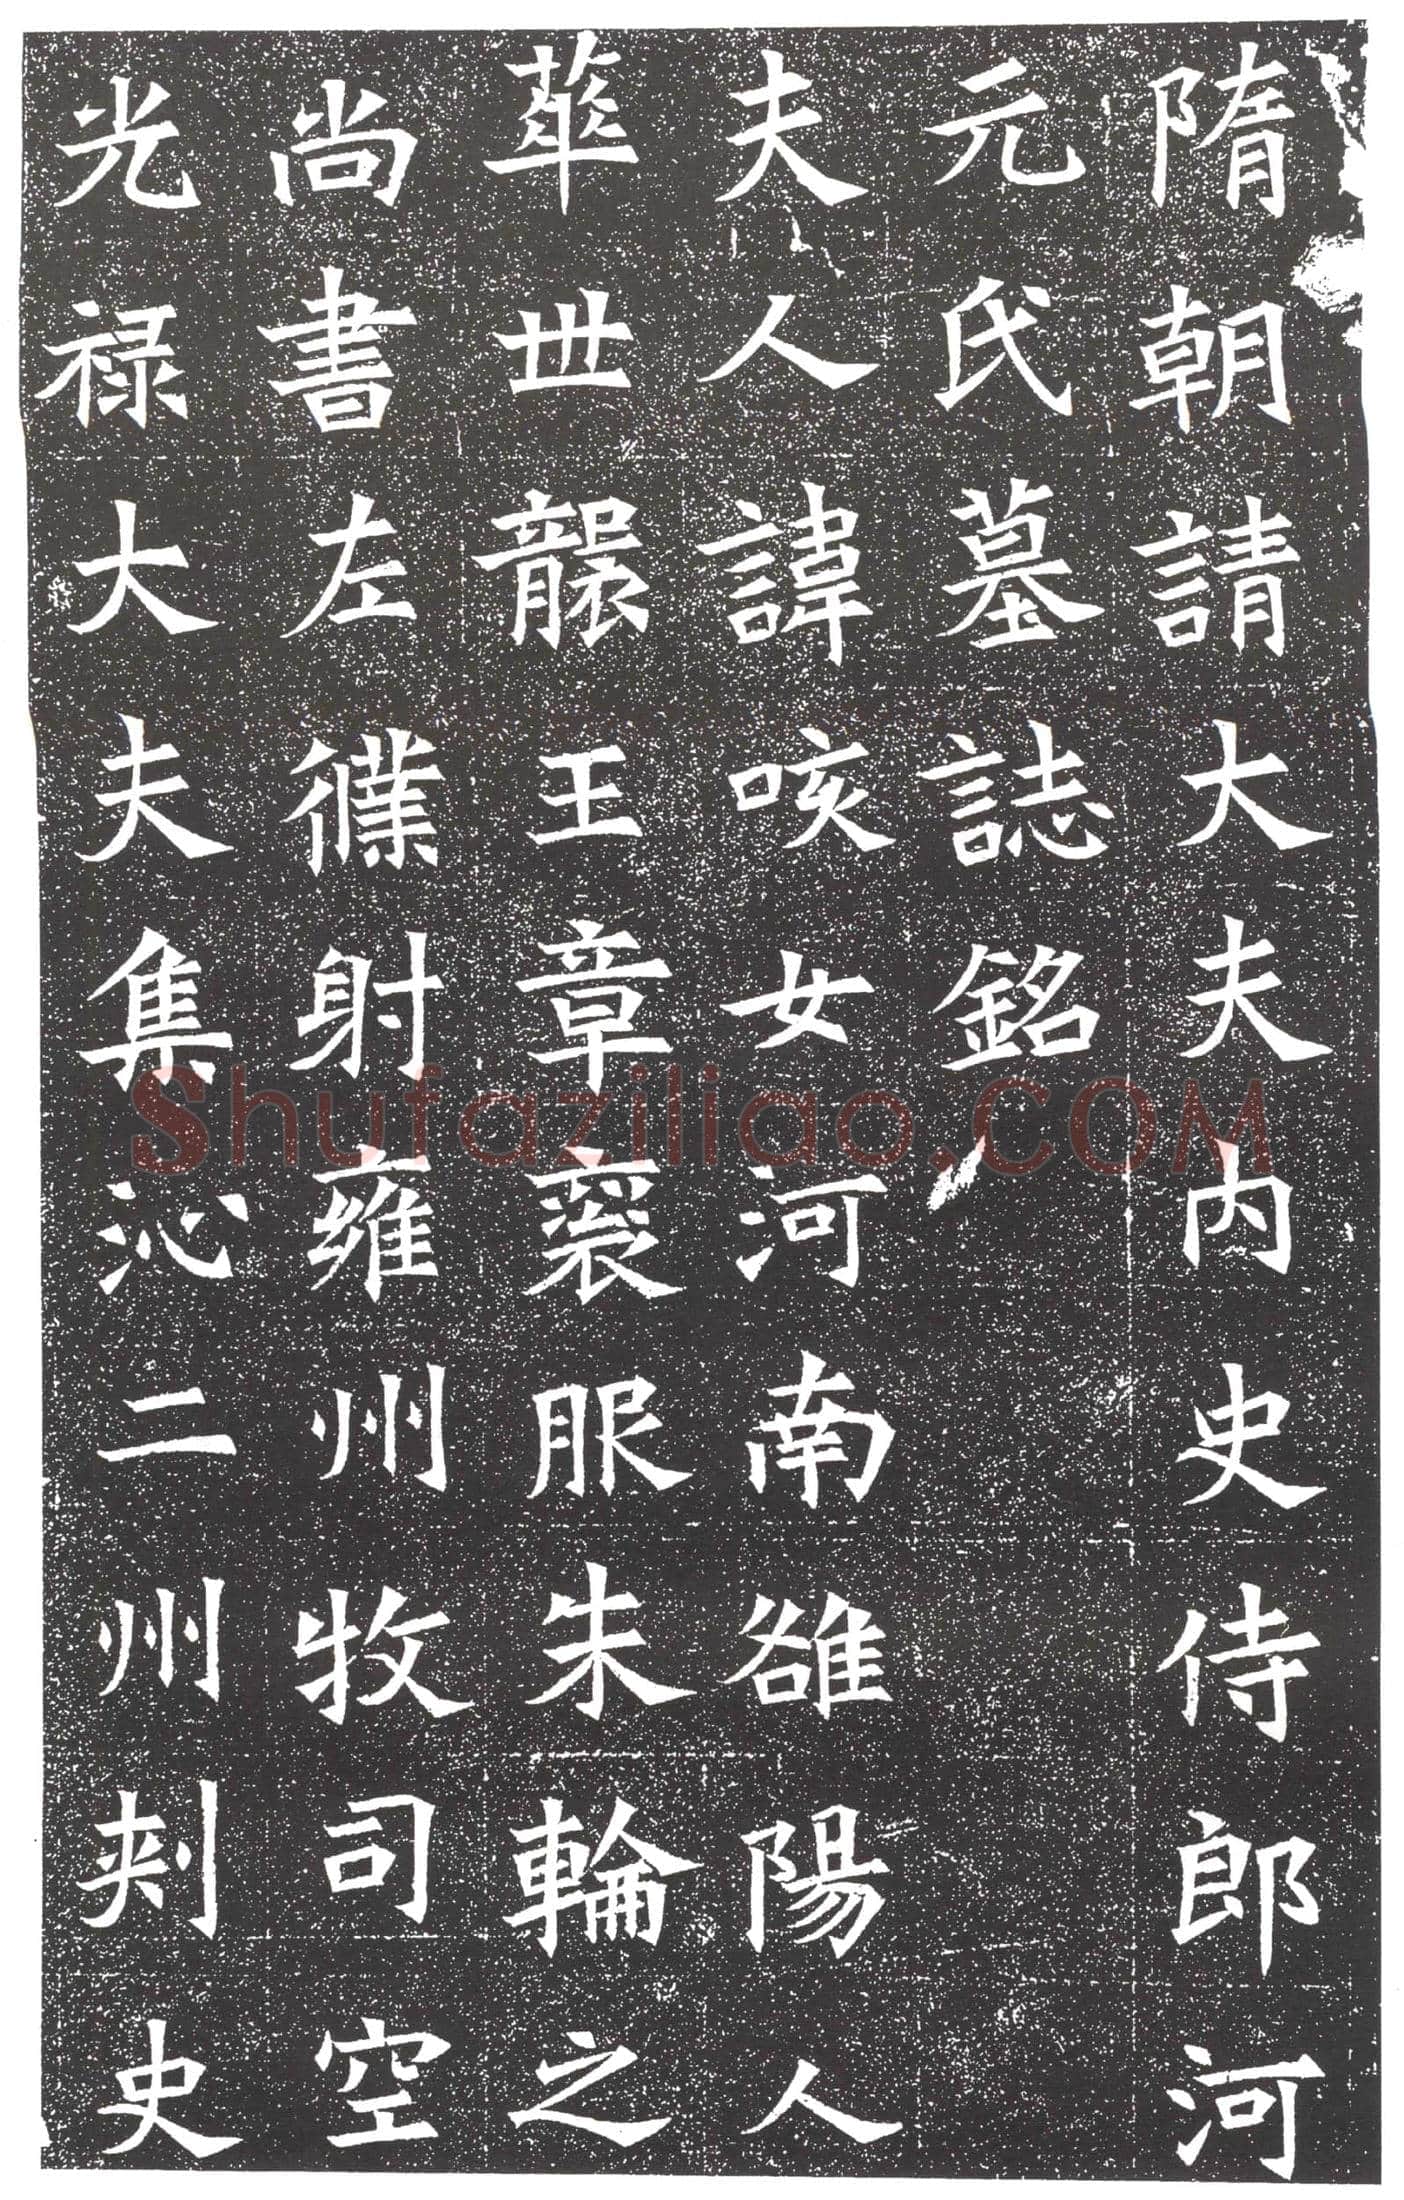 隋朝請大夫内史侍郎河
元氏墓誌銘
夫人諱咳女河南雒陽人
華世襲王章袞服朱輪之
尚書左僕射雍州牧司空
光禄大夫集沁二州刺史
Shufaziliao.COM